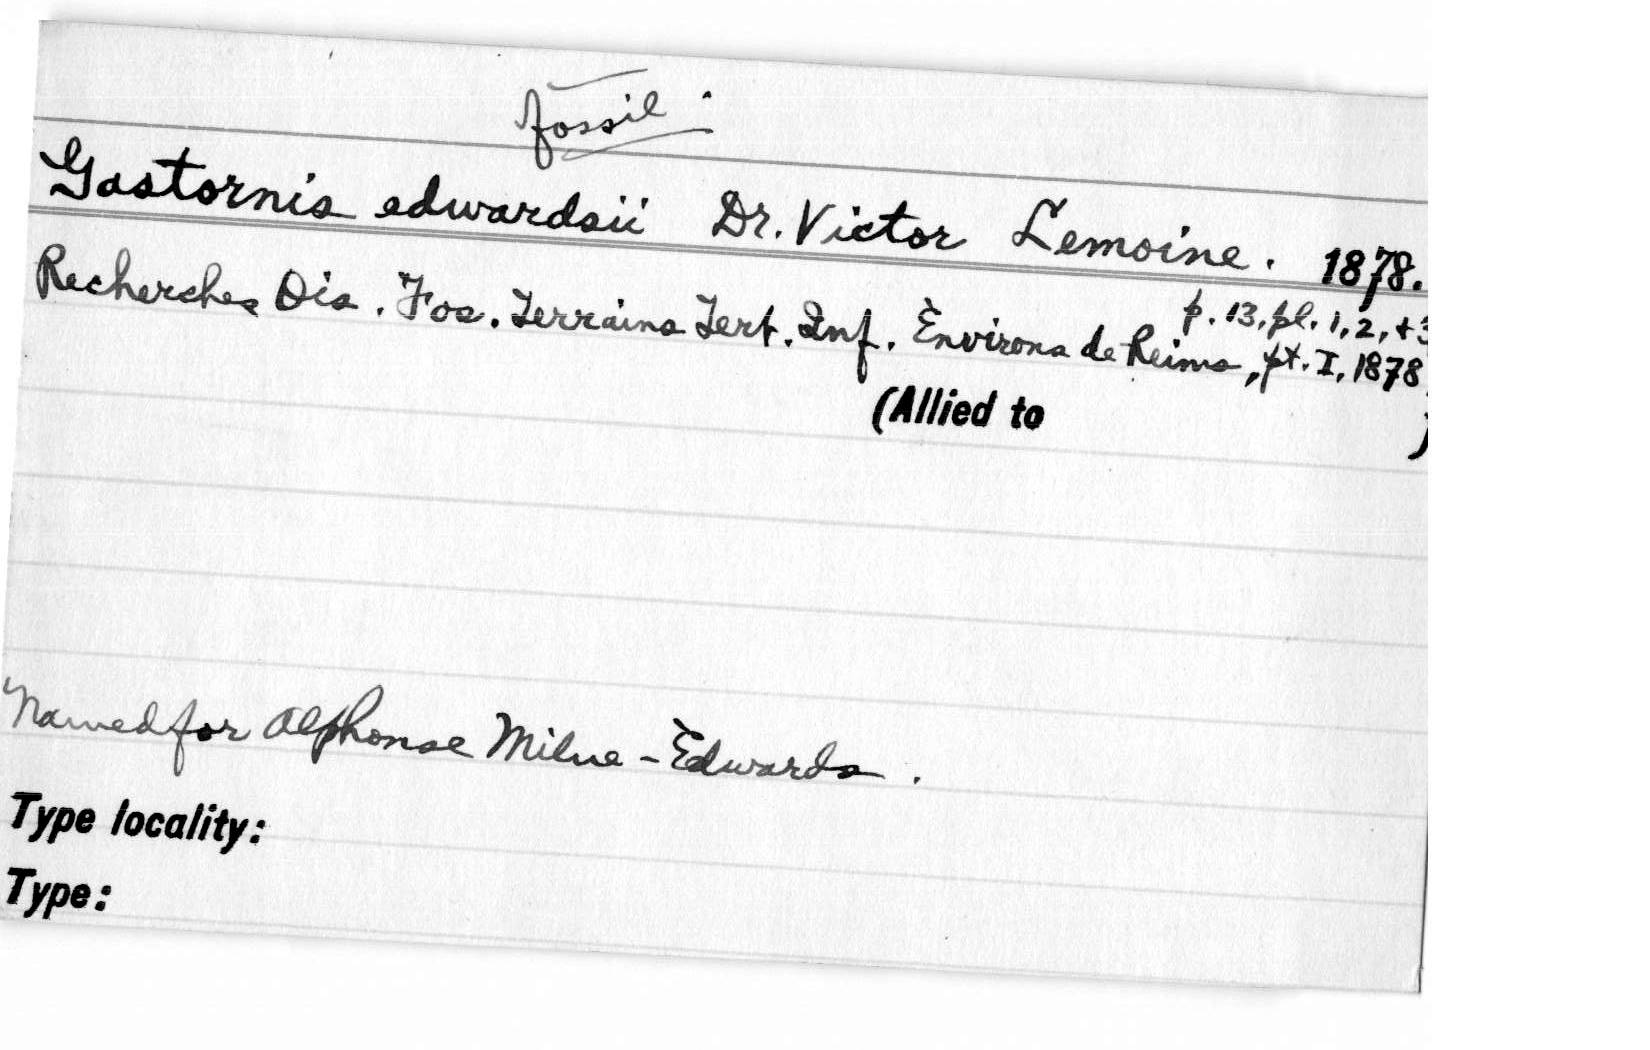 fossil.
Gastornis edwardsii Dr. Victor Lemoine. 1878.
p. 13, pl. 1, 2, + 3
Recherches Ois. Fos. Terrains Tert. Inf. Environs de Reims, pt. I, 1878
(Allied to )
Named for Alphonse Milne-Edwards.
Type locality:
Type: